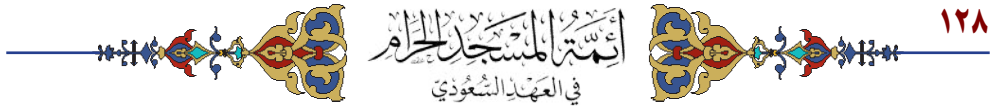 ١٢٨
أَئِمَّةُ المَسْجِدِ الحَرَامِ
في العَهْدِ السُّعُودِيّ